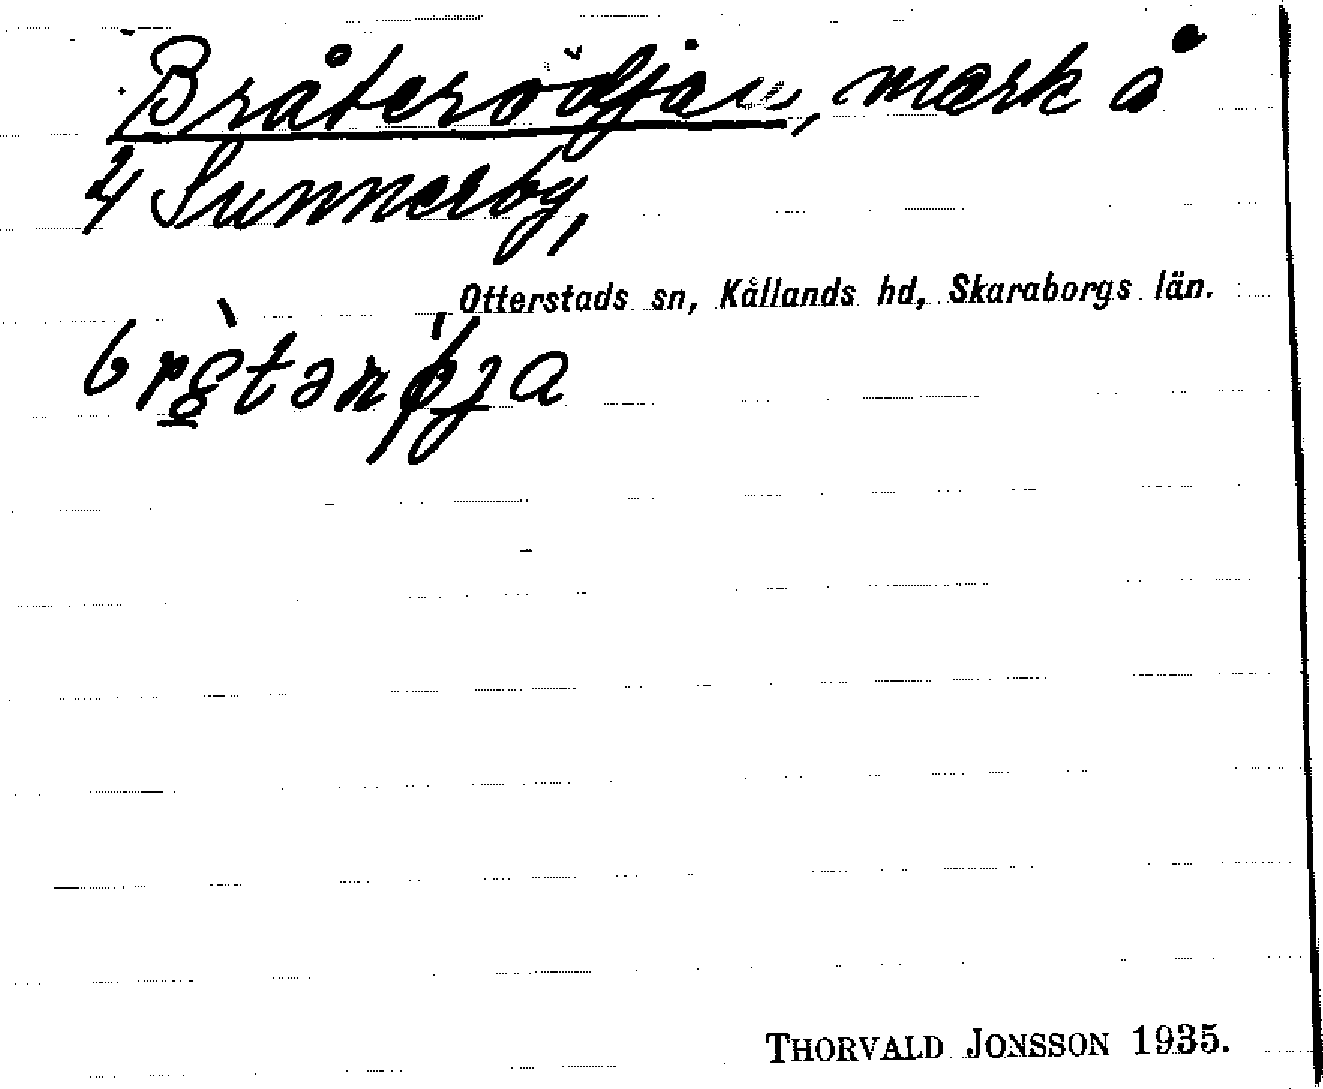 Bråterödjan, mark å
4 Sunnerby,
Otterstads sn, Kållands hd, Skaraborgs län.
THORVALD JONSSON 1935.